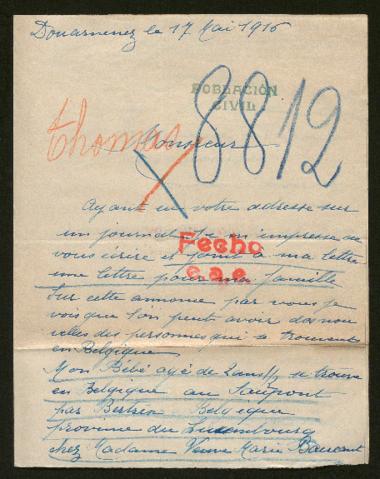 Douarnenez le 17 Mai 1916
POBLACIÓN
CIVIL
8812
Thomas
Monsieur
Ayant eu votre adresse sur
un journal je m'empresse de
vous écrire et joint à ma lettre
Fecho
une lettre pour ma famille
c.a.e.
Sur cette annonce par vous je
vois que l'on peut avoir des nou
velles des personnes qui se trouvent
en Belgique
Mon Bébé agé de 2ans½ se trouve
en Belgique au
par Bertrix Belgique
province du Luxembourg
chez Madame Veuve Marie